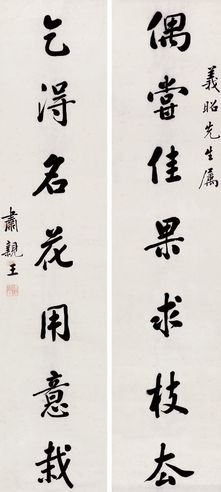 義昭先生屬
偶嘗佳果求枝厺
乞得名花用意栽
肅親王